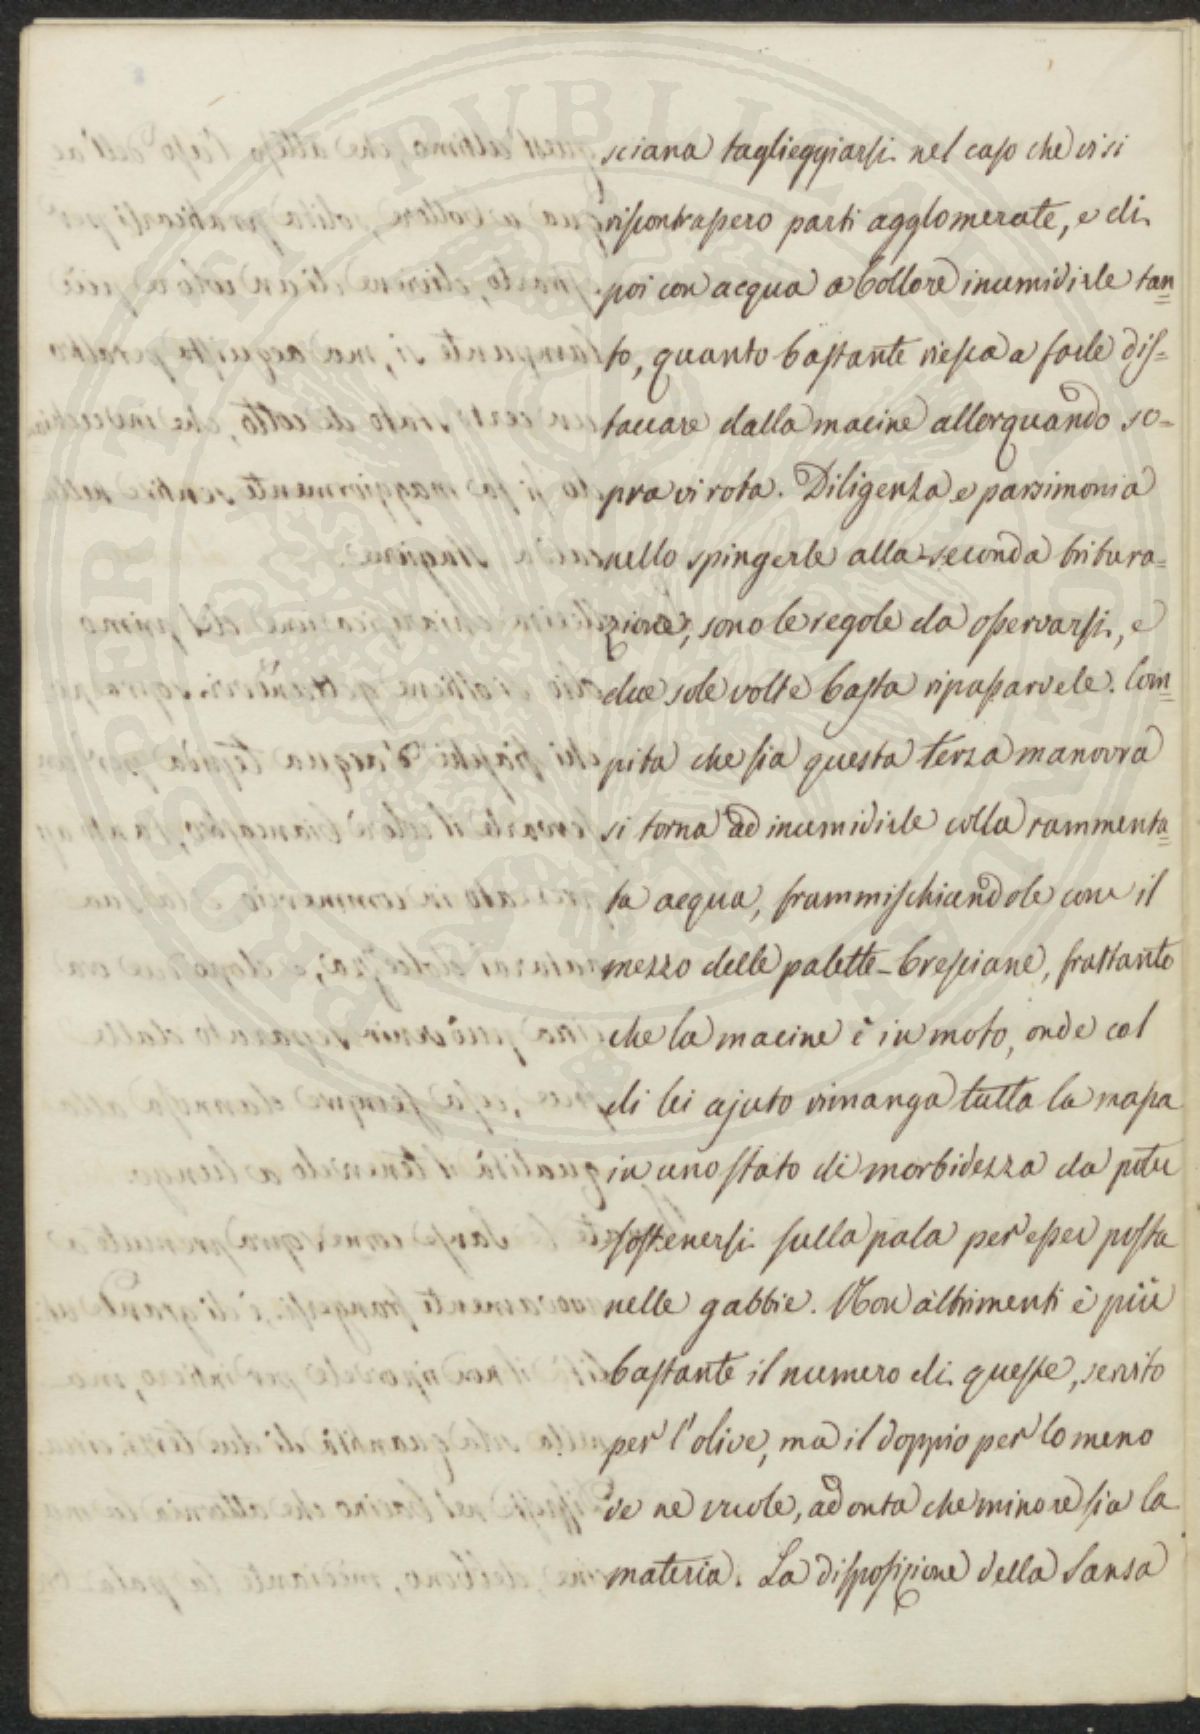 sciana taglieggiarsi nel caso che vi si
riscontrassero parti agglomerate, e di
poi con acqua a bollore inumidirle tan=
to, quanto bastante riesca a farle dis=
taccare dalla macine allorquando so=
pra vi rota. Diligenza e parsimonia
nello spingerle alla seconda tritura=
zione, sono le regole da osservarsi, e
due sole volte basta ripassarvele. Com=
pita che sia questa terza manovra
si torna ad inumidirle colla rammenta=
ta acqua, frammischiandole con il
mezzo delle palette-bresciane, frattanto
che la macine è in moto, onde col
di lei ajuto rimanga tutta la massa
in uno stato di morbidezza da poter
sostenersi sulla pala per esser posta
nelle gabbie. Non altrimenti è più
bastante il numero di queste, servito
per l'olive, ma il doppio per lo meno
ve ne vuole, ad onta che minore sia la
materia. La disposizione della Sansa